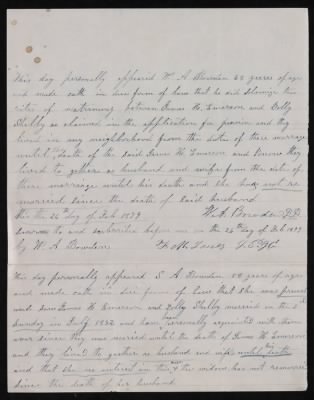 This day personally appeared W. A. Bowden 62 years of age
and made oath in due form of law that he did solemnize the
rites of matrimony between James H. Emerson and Polly
Shelby as claimed in the application for pension and they
lived in my neighborhood from the date of there marriage
until death of the said James H. Emerson and knows they
lived to gether as husband and wife from the date of
there marriage until his death and she has not re
married since the death of said husband
this the 26th day of Feb 1879
W. A. Bowden
sworn to and subscribed before me on the 26th day of Feb 1879
by W. A. Bowden
This day personally appeared S. A. Bowden 58 years of age
and made oath in due form of law that she was present
and saw James H. Emerson and Polly Shelby married on the
Sunday in July 1832 and have been personally acquainted with them
ever since they was married until the death of James H. Emerson
and they lived to gether as husband and wife until death
and that she the widow has not remarried
since the death of her husband